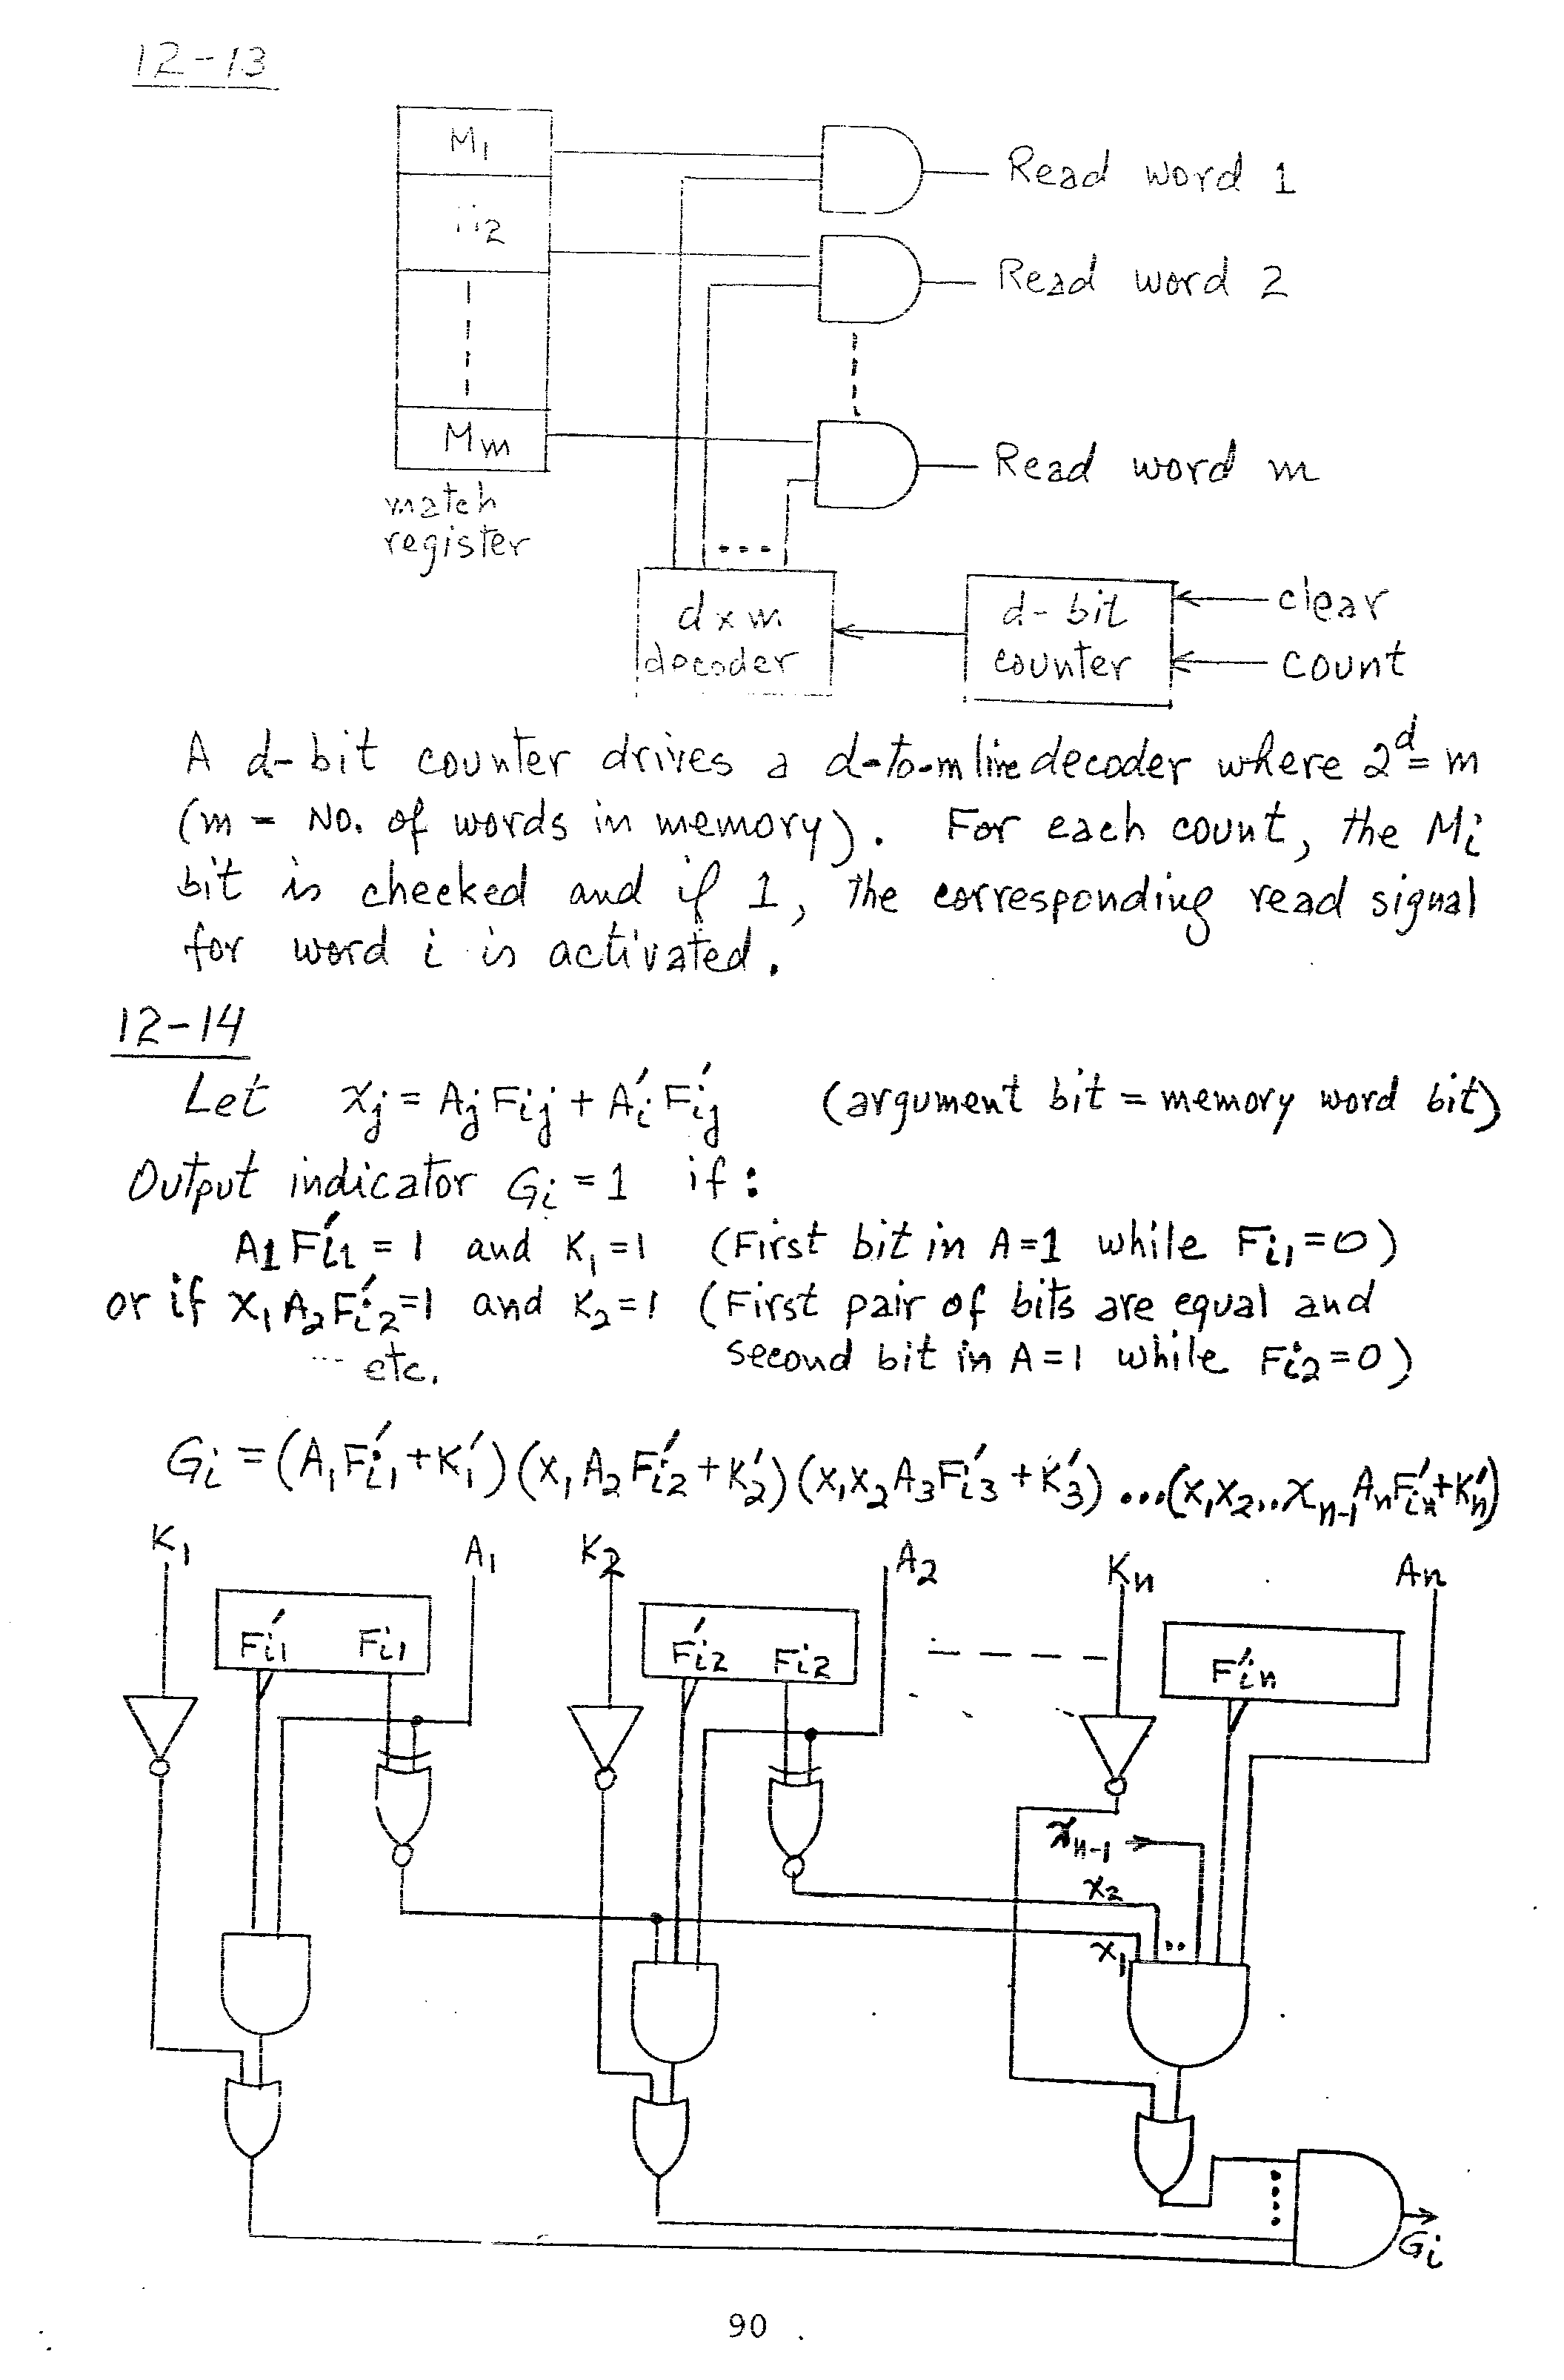 12-13
M1
Read word 1
M2
Read word 2
Mm
Read word m
match
register
d x m
decoder
d-bit
counter
clear
count
A d-bit counter drives a d-to-m line decoder where 2^d = m
(m = No. of words in memory). For each count, the Mi
bit is checked and if 1, the corresponding read signal
for word i is activated.
12-14
Let xj = Aj Fij + A'i F'ij (argument bit = memory word bit)
Output indicator Gi = 1 if:
A1 F'i1 = 1 and K1 = 1 (First bit in A=1 while Fi1 = 0)
or if x1 A2 F'i2 = 1 and K2 = 1 (First pair of bits are equal and
... etc. second bit in A = 1 while Fi2 = 0)
Gi = (A1 F'i1 + K'1) (x1 A2 F'i2 + K'2) (x1 x2 A3 F'i3 + K'3) ...(x1 x2 .. xn-1 An F'in + K'n)
K1 A1 K2 A2 Kn An
F'i1 Fi1 F'i2 Fi2 F'in
xn-1
x2
x1
Gi
90